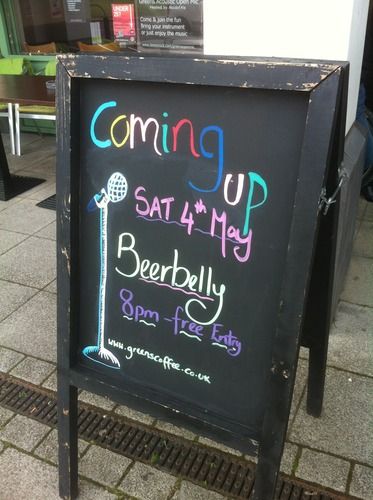 Greens Acoustic Open Mic
Come & join the fun
Bring your instrument
or just enjoy the music
UNDER
25?
Coming
UP
SAT 4th May
Beerbelly
8pm - free Entry
www.greenscoffee.co.uk